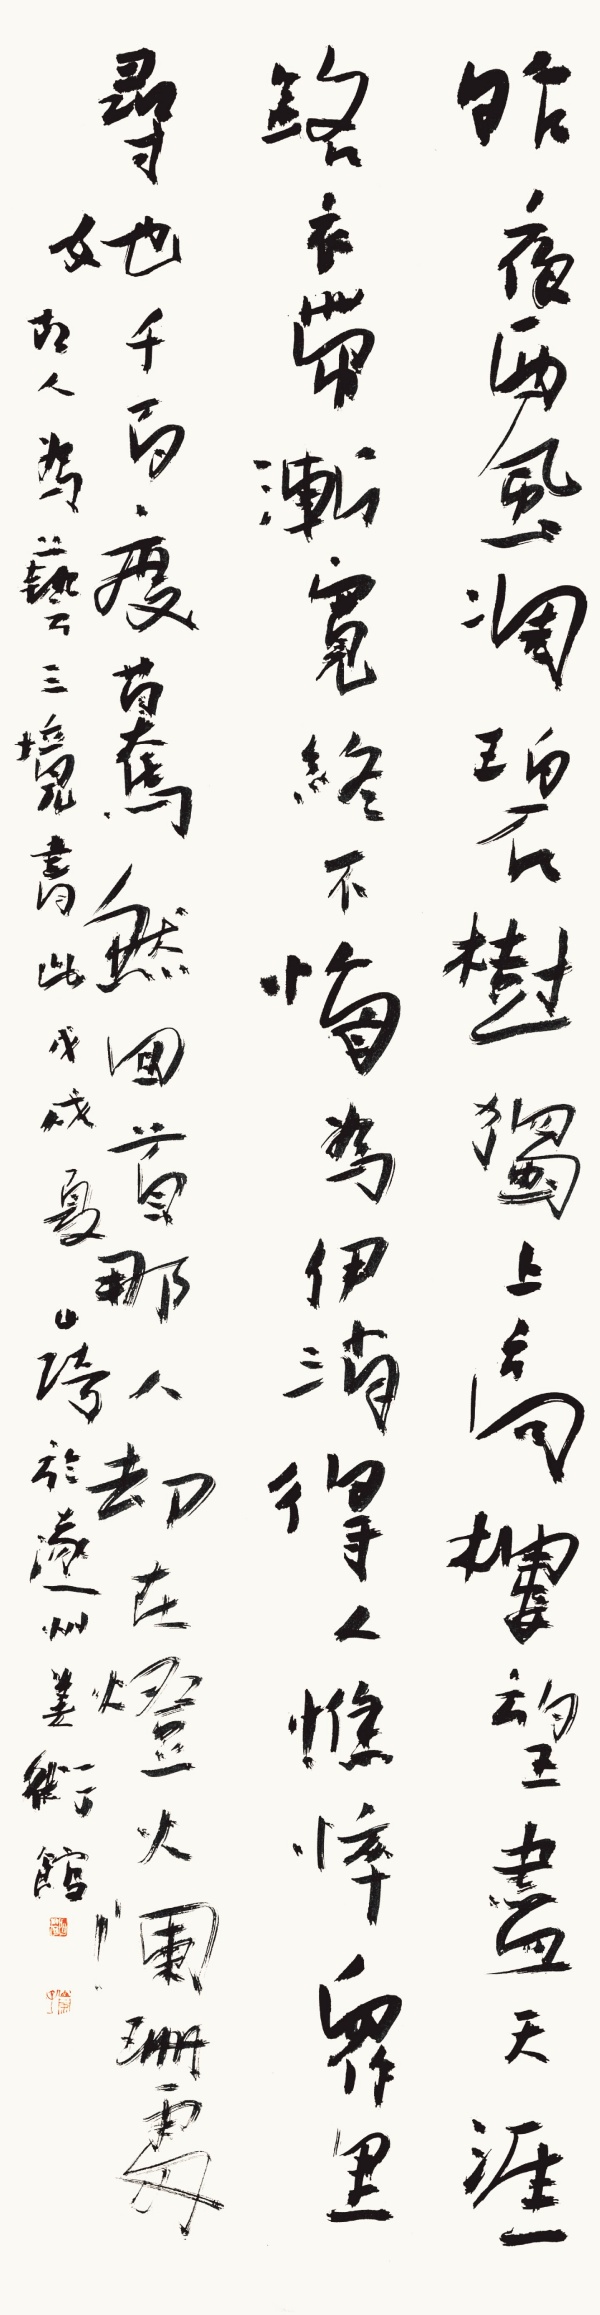 昨夜西風凋碧樹獨上高樓望盡天涯
路衣帶漸寬終不悔為伊消得人憔悴眾里
尋她千百度驀然回首那人却在燈火闌珊處
人為藝三境書此戊戌夏於遂州美術館